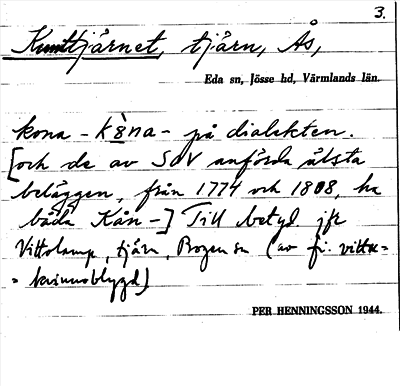 3.
Kunttjärnet, tjärn, Ås,
Eda sn, Jösse hd, Värmlands län.
kona - kȣ̀na - på dialekten.
[och de av SOV anförda äldsta
beläggen, från 1774 och 1808, ha
båda Kån -] Till betyd. jfr
Vittolamp, tjärn, Bogen sn (av fi. vittu =
= kvinnoblygd)
PER HENNINGSSON 1944.